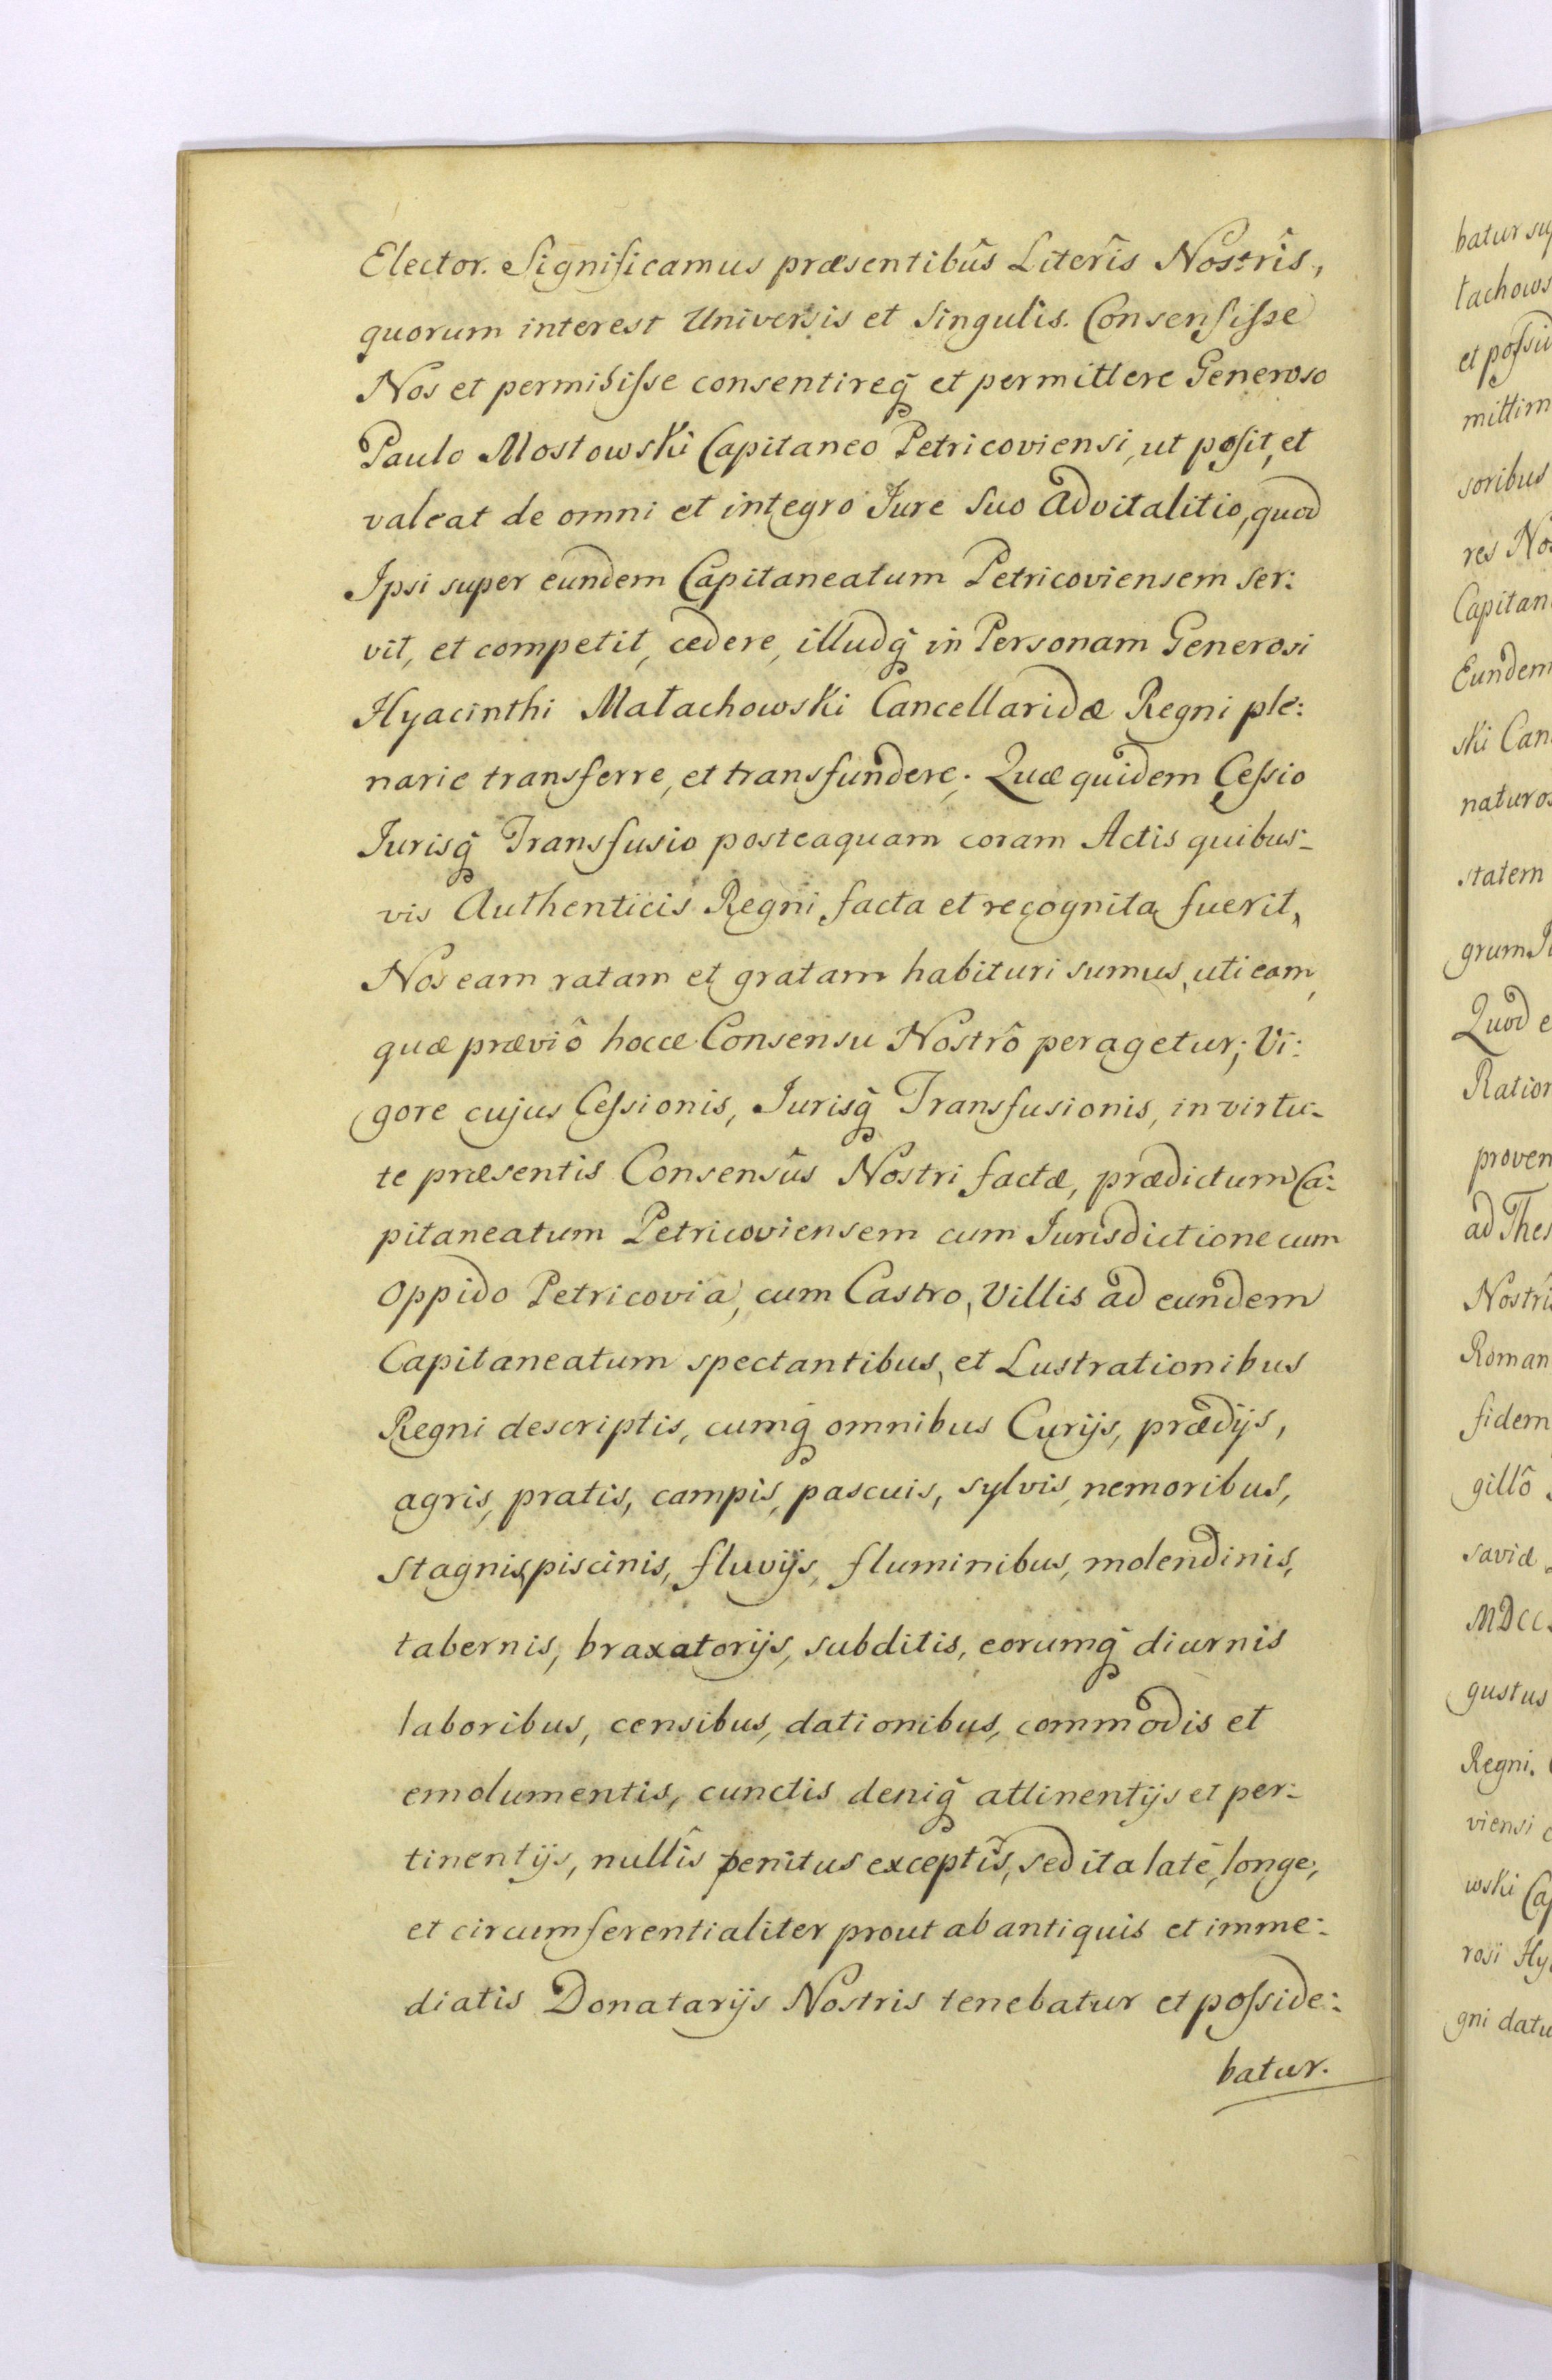 Elector. Significamus præsentibûs Literîs Nostrîs,
quorum interest Universis et Singulis. Consensiſse
Nos et permisiſse consentireq̃ et permittere Generoso
Paulo Mostowski Capitaneo Petricoviensi, ut poſsit, et
valeat de omni et integro Jure Suo advitalitio, quod
Ipsi super eundem Capitaneatum Petricoviensem ser:
vit, et competit, cedere, illudq̃ in Personam Generosi
Hyacinthi Małachowski Cancellaridæ Regni ple:
narie transferre, et transfundere; Quæ quidem Ceſsio
Jurisq̃ Transfusio posteaquam coram Actis quibus-
vis Authenticis Regni facta et recognita fuerit,
Nos eam ratam et gratam habituri sumus, uti eam,
quæ præviô hocce Consensu Nostrô peragetur; Vi:
gore cujus Ceſsionis, Jurisq̃ Transfusionis, in virtu-
te præsentis Consensûs Nostri factæ, prædictum Ca:
pitaneatum Petricoviensem cum Jurisdictione cum
Oppido Petricovia, cum Castro, Villis ad eundem
Capitaneatum spectantibus, et Lustrationibus
Regni descriptis, cumq̃ omnibus Curijs, prædijs,
agris, pratis, campis, pascuis, sylvis, nemoribus,
stagnis, piscinis, fluvijs, fluminibus, molendinis,
tabernis, braxatorijs, subditis, eorumq̃ diurnis
laboribus, censibus, dationibus, commodis et
emolumentis, cunctis deniq̃ attinentijs et per:
tinentijs, nullîs penitus exceptîs, sed ita latè, longe,
et circumferentialiter prout ab antiquis et imme:
diatis Donatarijs Nostris tenebatur et poſside:
batur.
batur su
łachows
et poſsid
mittim
soribus
res Nos
Capitan
Eundem
ski Can
naturos
statem
grum J
Quod e
Ration
proven
ad Thes
Nostri
Roman
fidem
gillô
saviæ
MDCC
gustus
Regni.
viensi c
wski Ca
rosi Hy
gni datu